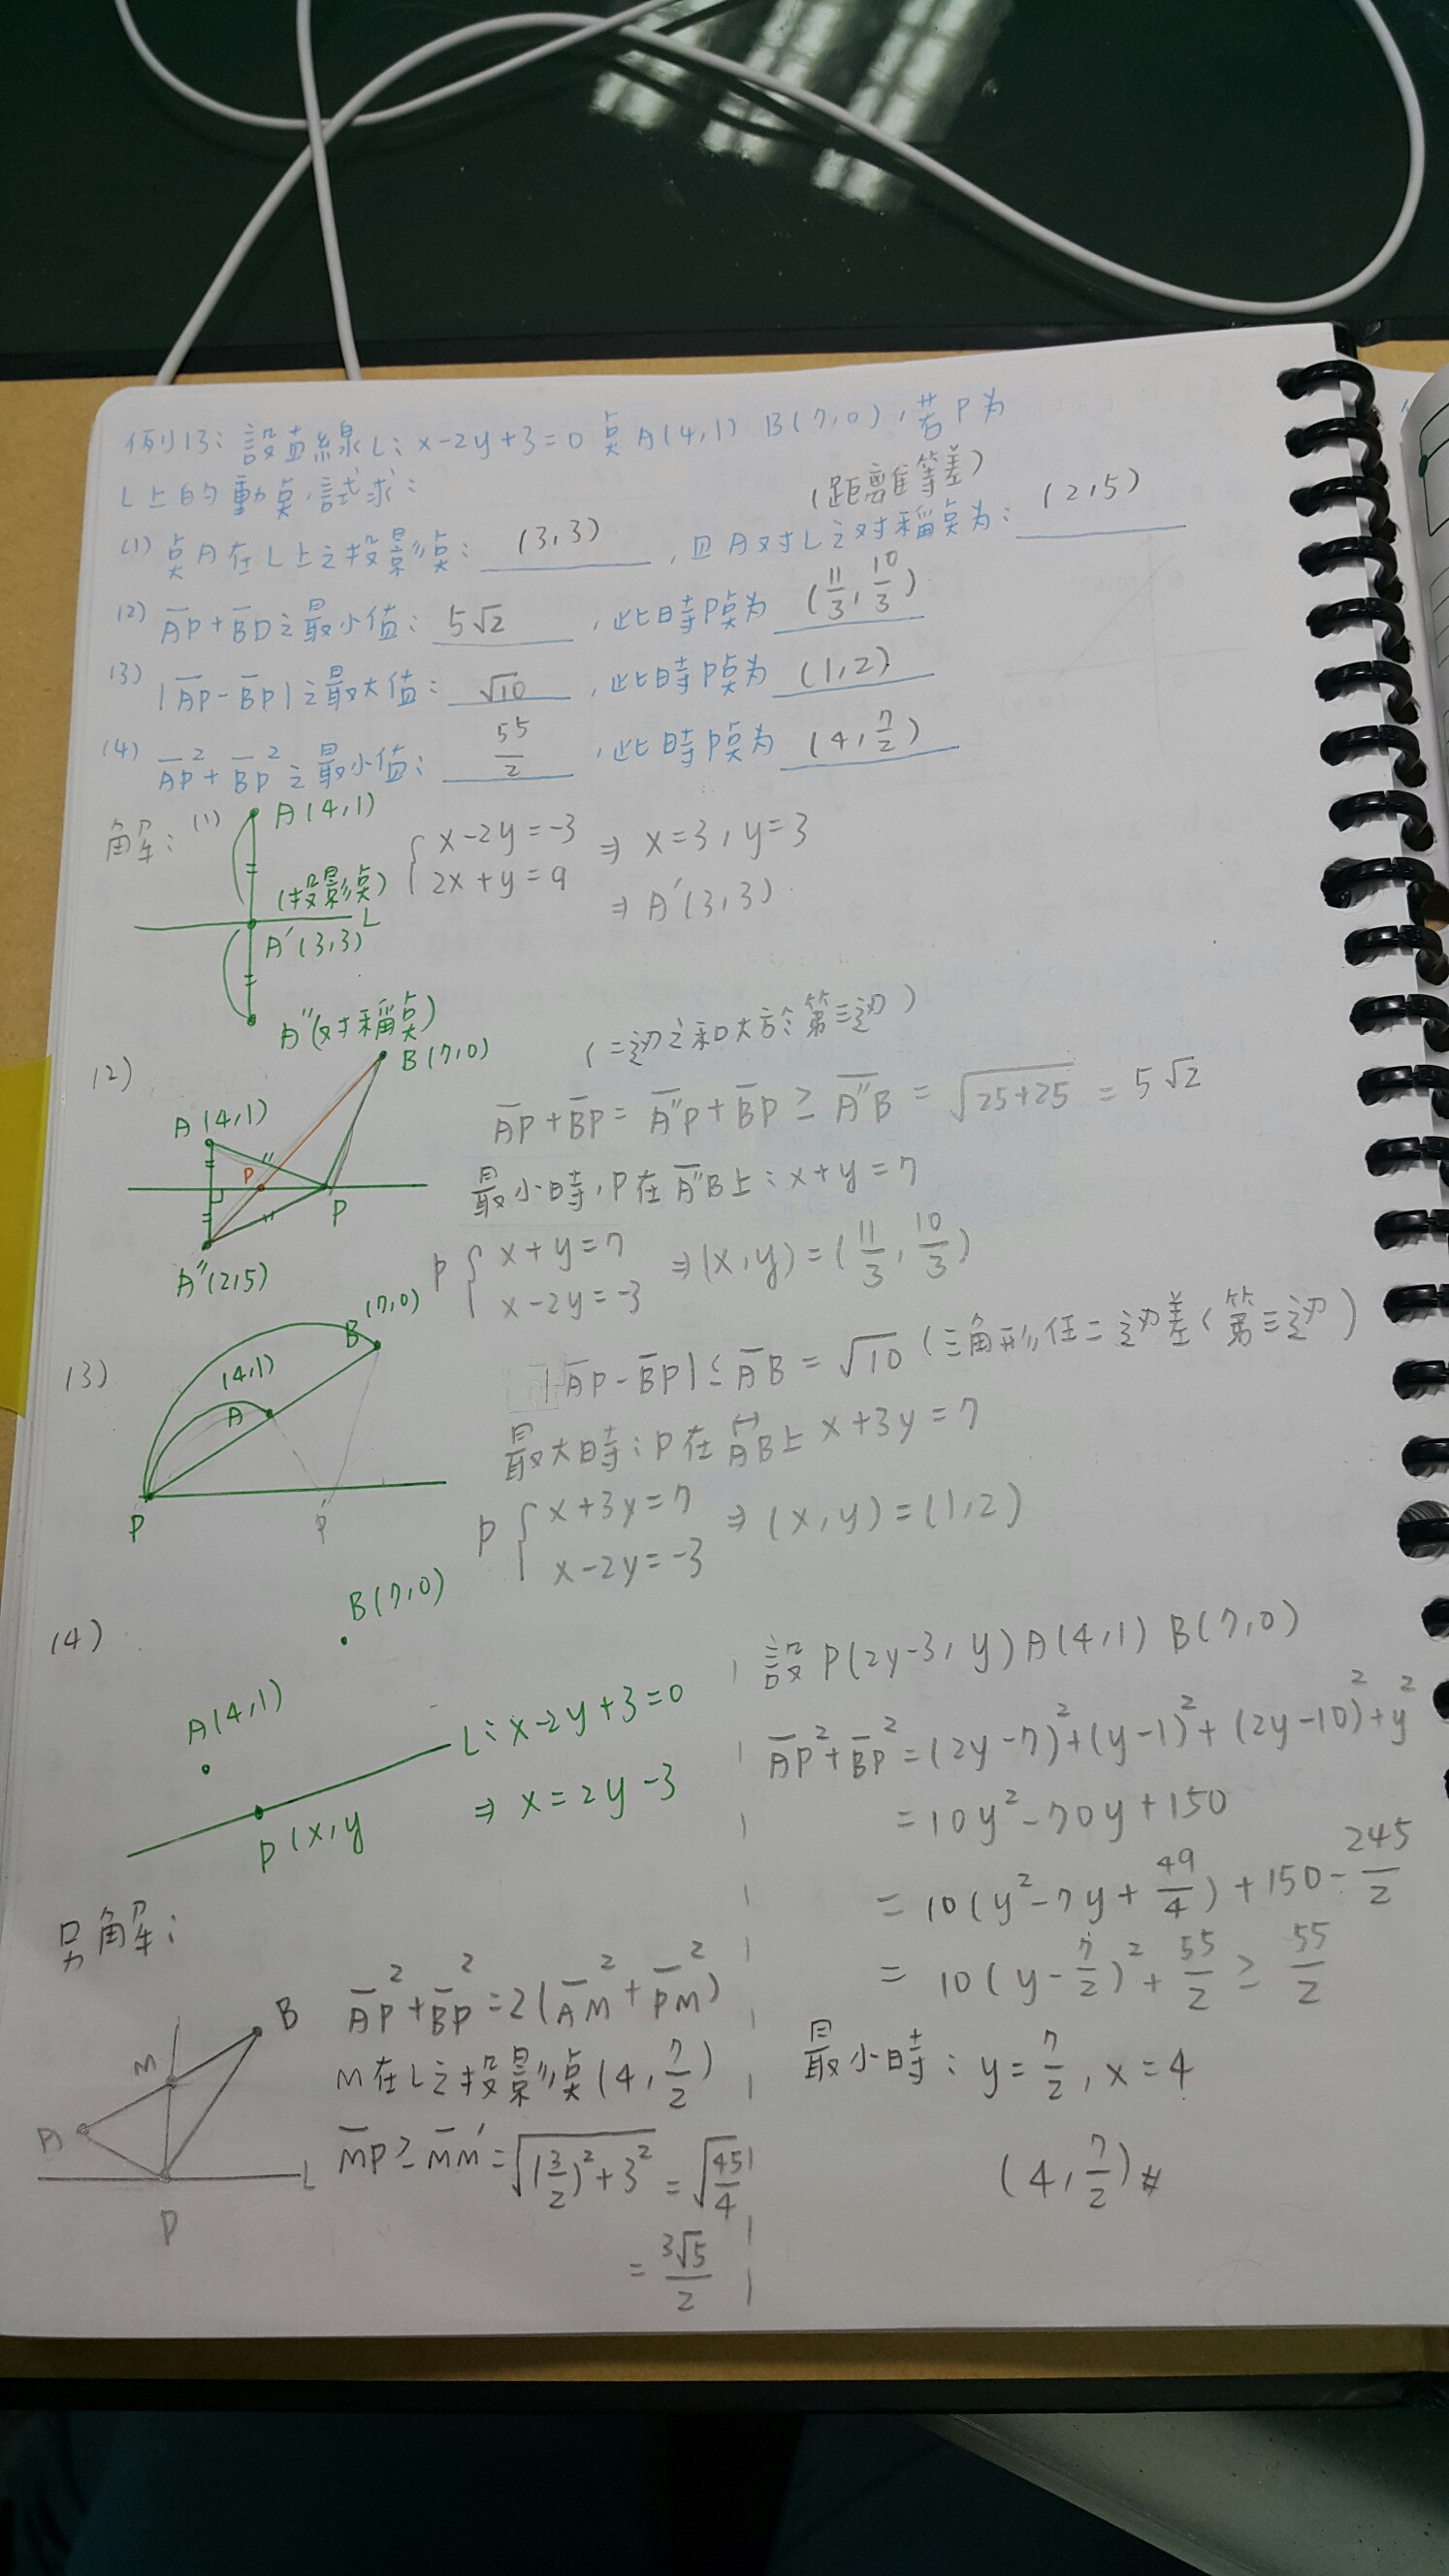 例13：設直線L：x-2y+3=0 點A(4,1) B(7,0)，若P為
L上的動點，試求：
(距離等差)
(1) 點A在L上之投影點：(3,3)，且A对L之对稱点为：(2,5)
(2) A̅P̅+B̅D̅之最小值：5√2，此時P點为 (11/3, 10/3)
(3) |A̅P̅-B̅P̅|之最大值：√10，此時P點为 (1,2)
(4) A̅P̅²+B̅P̅²之最小值：55/2，此時P點为 (4, 7/2)
解：(1) A(4,1)
(投影點)
L
A′(3,3)
A″(对稱點)
{ x-2y=-3
2x+y=9
⇒ x=3, y=3
⇒ A′(3,3)
(2)
B(7,0)
A(4,1)
P
P
A″(2,5)
(二边之和大於第三边)
A̅P̅+B̅P̅=A̅″P̅+B̅P̅≥A̅″B̅=√25+25=5√2
最小時，P在A̅″B̅上：x+y=7
P { x+y=7
x-2y=-3
⇒(x,y)=(11/3, 10/3)
(3)
(7,0)
B
(4,1)
A
P
P′
|A̅P̅-B̅P̅|≤A̅B̅=√10 (三角形任二边差<第三边)
最大時：P在A͍B͍上 x+3y=7
P { x+3y=7
x-2y=-3
⇒ (x,y)=(1,2)
(4)
B(7,0)
A(4,1)
L：x-2y+3=0
⇒ x=2y-3
P(x,y
設P(2y-3,y) A(4,1) B(7,0)
A̅P̅²+B̅P̅²=(2y-7)²+(y-1)²+(2y-10)²+y²
=10y²-70y+150
=10(y²-7y+49/4)+150-245/2
=10(y-7/2)²+55/2≥55/2
最小時：y=7/2, x=4
(4, 7/2)#
另解：
B
M
A
L
P
A̅P̅²+B̅P̅²=2(A̅M̅²+P̅M̅²)
M在L之投影點(4, 7/2)
M̅P̅≥M̅M̅′=√(3/2)²+3²=√45/4
=3√5/2